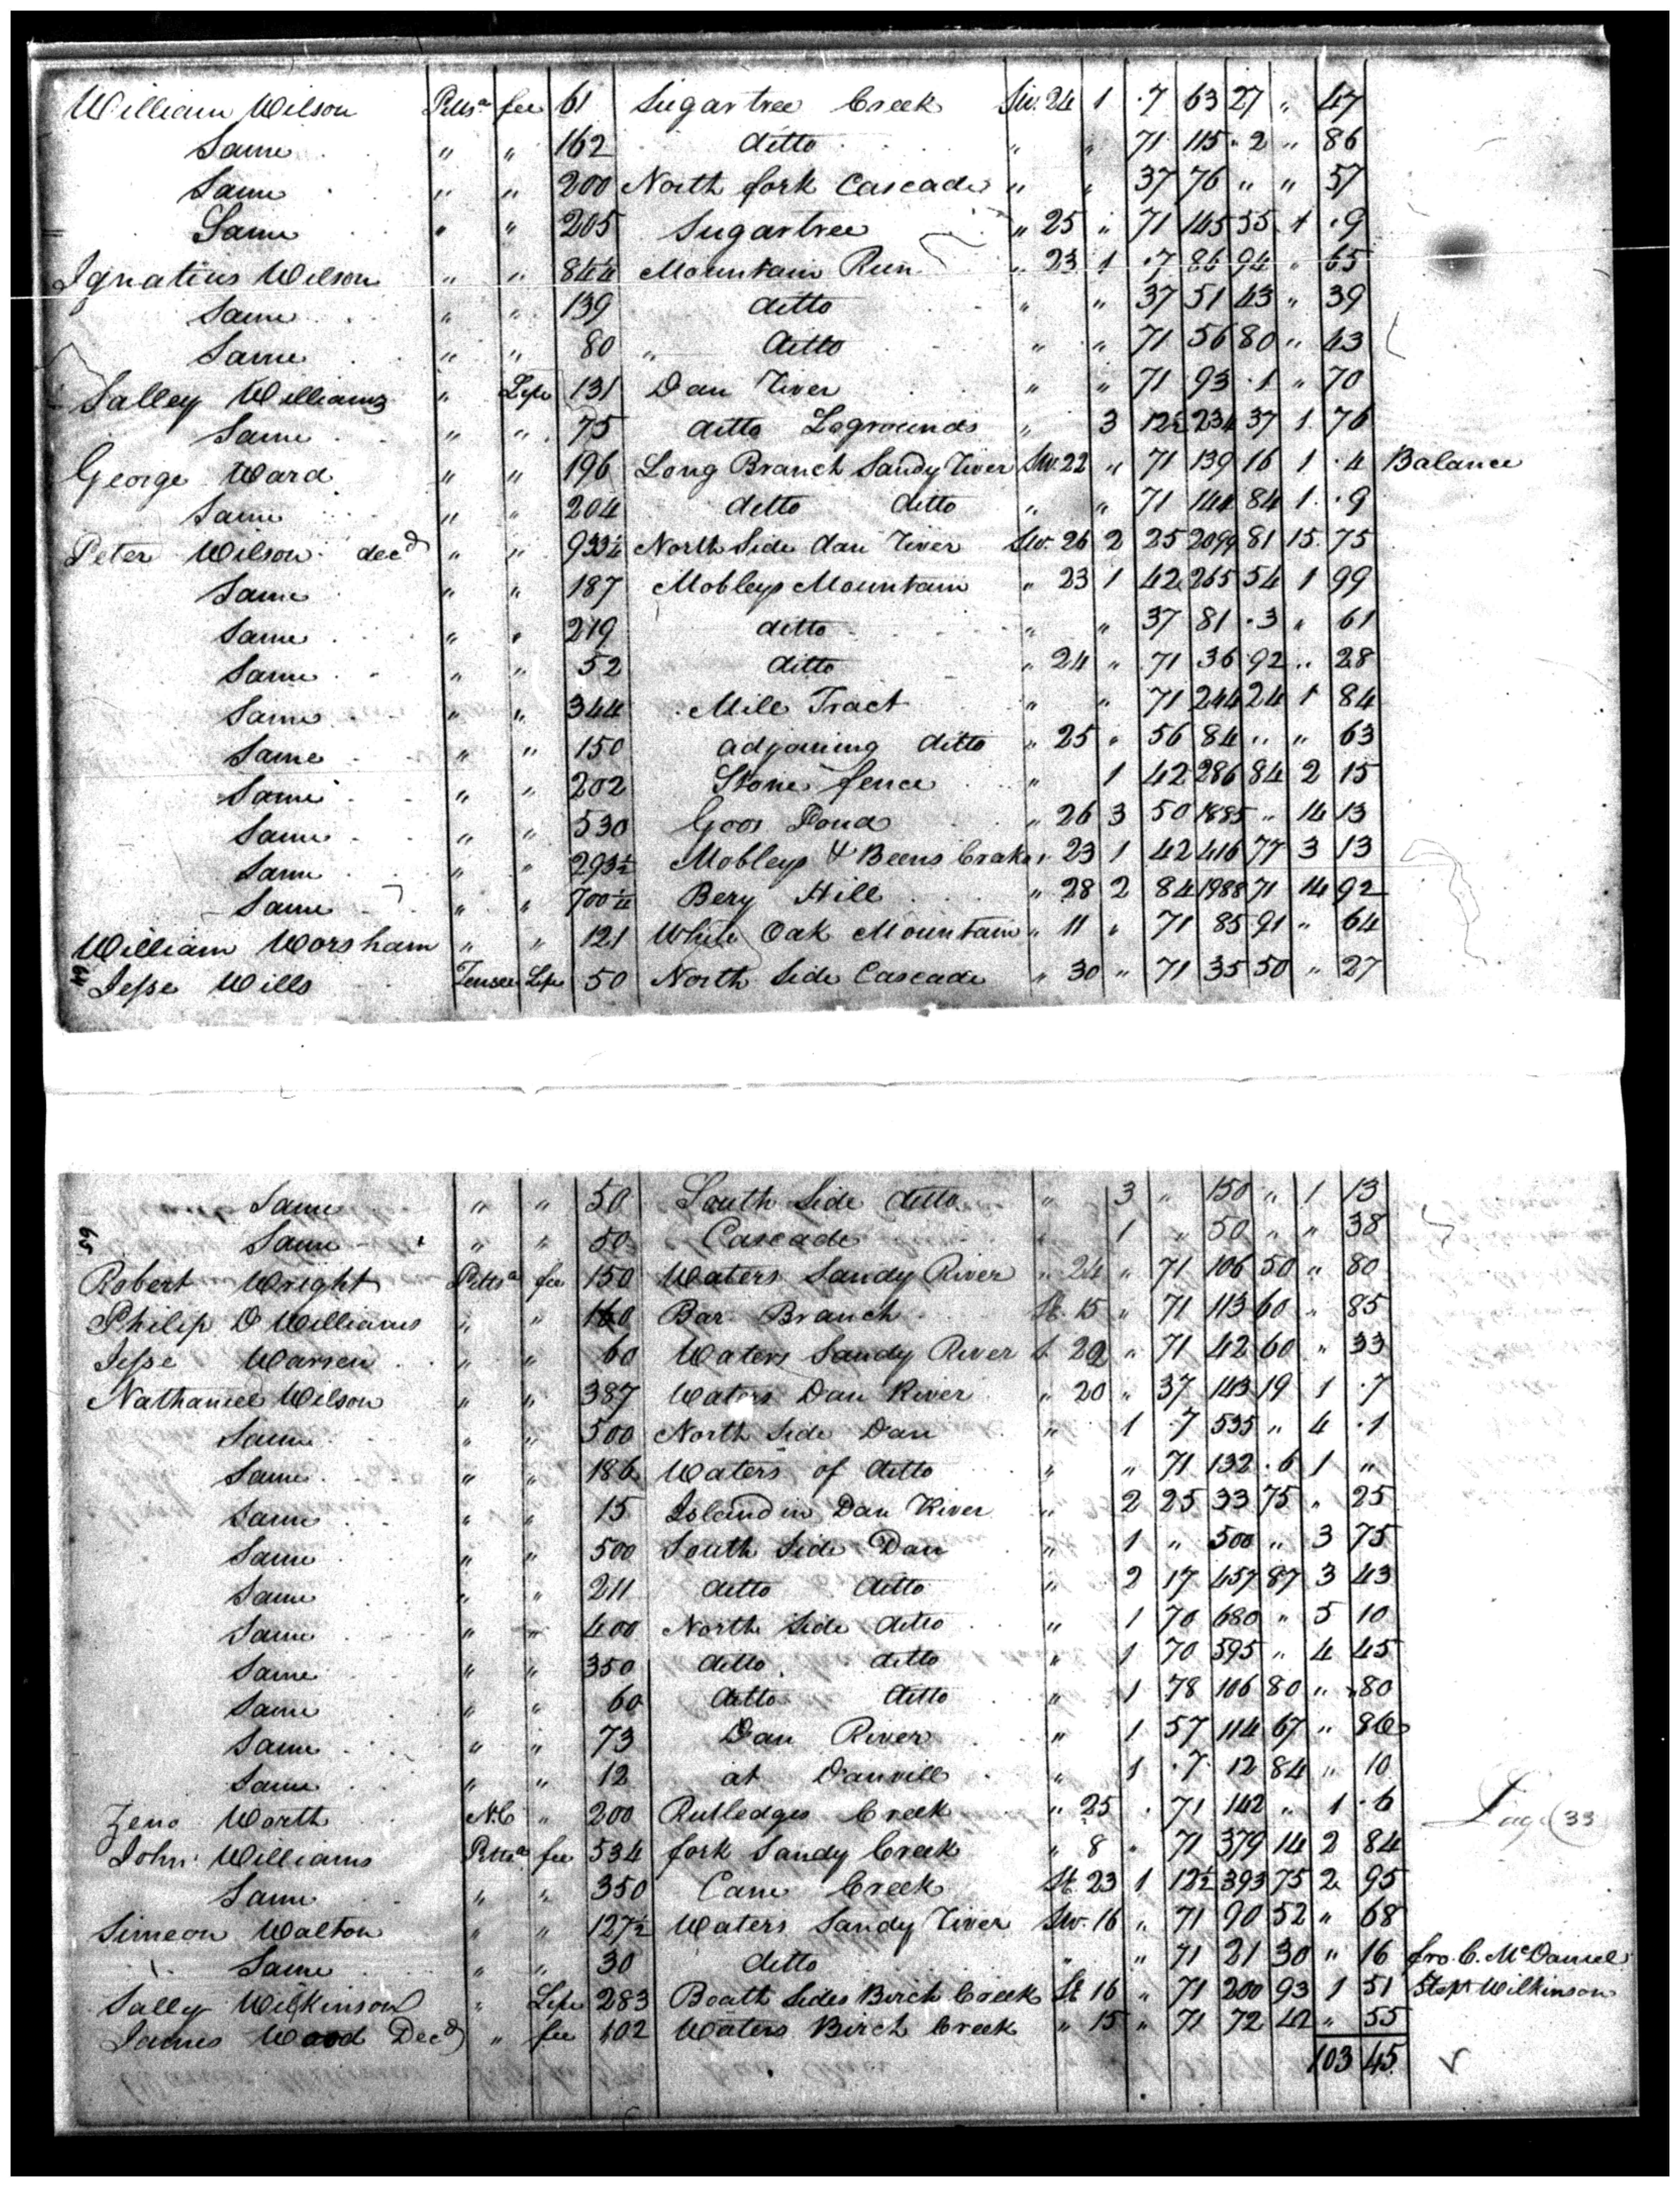 William Wilson Pittsa fee 61 Sugartree Creek Sw. 24 1 .7 63 27 " 47
Same " " 162 ditto " " 71 115 .2 " 86
Same " " 200 North fork Cascade " " 37 76 " " 57
Same " " 205 Sugartree " 25 " 71 145 55 1 .9
Ignatius Wilson " " 81¼ Mountain Run " 23 1 .7 86 94 " 65
Same " " 139 ditto " " 37 51 43 " 39
Same " " 80 " ditto " " 71 56 80 " 43
Salley Williams " Life 131 Dan River " " 71 93 .1 " 70
Same " " 75 ditto Logrounds " 3 12½ 234 37 1 76
George Ward " " 196 Long Branch Sandy River Sw. 22 " 71 139 16 1 .4 Balance
Same " " 204 ditto ditto " " 71 144 84 1 .9
Peter Wilson decd " " 933¼ North Side dan River Sw. 26 2 25 2099 81 15 75
Same " " 187 Mobleys Mountain " 23 1 42 265 54 1 99
Same " " 219 ditto " " 37 81 .3 " 61
Same " " 52 ditto " 24 " 71 36 92 " 28
Same " " 344 Mill Tract " " 71 244 24 1 84
Same " " 150 adjoining ditto " 25 " 56 84 " " 63
Same " " 202 Stone fence " 1 42 286 84 2 15
Same " " 530 Goos Pond " 26 3 50 1885 " 14 13
Same " " 293½ Mobleys & Beens Crake " 23 1 42 416 77 3 13
Same " " 700¼ Bery Hill " 28 2 84 1988 71 14 92
William Worsham " " 121 White Oak Mountain " 11 " 71 85 91 " 64
Jesse Wills Tensee Life 50 North Side Cascade " 30 " 71 35 50 " 27
Same " " 50 South Side ditto " 3 " 150 " 1 13
Same " " 50 Cascade " 1 " 50 " " 38
Robert Wright Pittsa fee 150 Waters Sandy River " 24 " 71 106 50 " 80
Philip D Williams " " 160 Bar Branch St. 15 " 71 113 60 " 85
Jesse Warren " " 60 Waters Sandy River S. 22 " 71 42 60 " 33
Nathaniel Wilson " " 387 Waters Dan River " 20 " 37 143 19 1 .7
Same " " 500 North Side Dan " 1 .7 535 " 4 .1
Same " " 186 Waters of ditto " " 71 132 .6 1 "
Same " " 15 Island in Dan River " 2 25 33 75 " 25
Same " " 500 South Side Dan " 1 " 500 " 3 75
Same " " 211 ditto ditto " 2 17 457 87 3 43
Same " " 400 North Side ditto " 1 70 680 " 5 10
Same " " 350 ditto ditto " 1 70 595 " 4 45
Same " " 60 ditto ditto " 1 78 106 80 " 80
Same " " 73 Dan River " 1 57 114 67 " 86
Same " " 12 at Danvill " 1 .7 12 84 " 10
Zeno Worth N.C " 200 Rutledges Creek " 25 . 71 142 " 1 .6 Page (33
John Williams Pittsa fee 534 fork Sandy Creek " 8 " 71 379 14 2 84
Same " " 350 Cane Creek St. 23 1 12½ 393 75 2 95
Simeon Walton " " 127½ Waters Sandy River Sw. 16 " 71 90 52 " 68
Same " " 30 ditto " " 71 21 30 " 16 fro. C. McDaniel
Sally Wilkinson " Life 283 Boath Sides Birch Creek St 16 " 71 200 93 1 51 Wilkinson
James Wood Decd " fee 102 Waters Birch Creek " 15 " 71 72 42 " 55
103 45